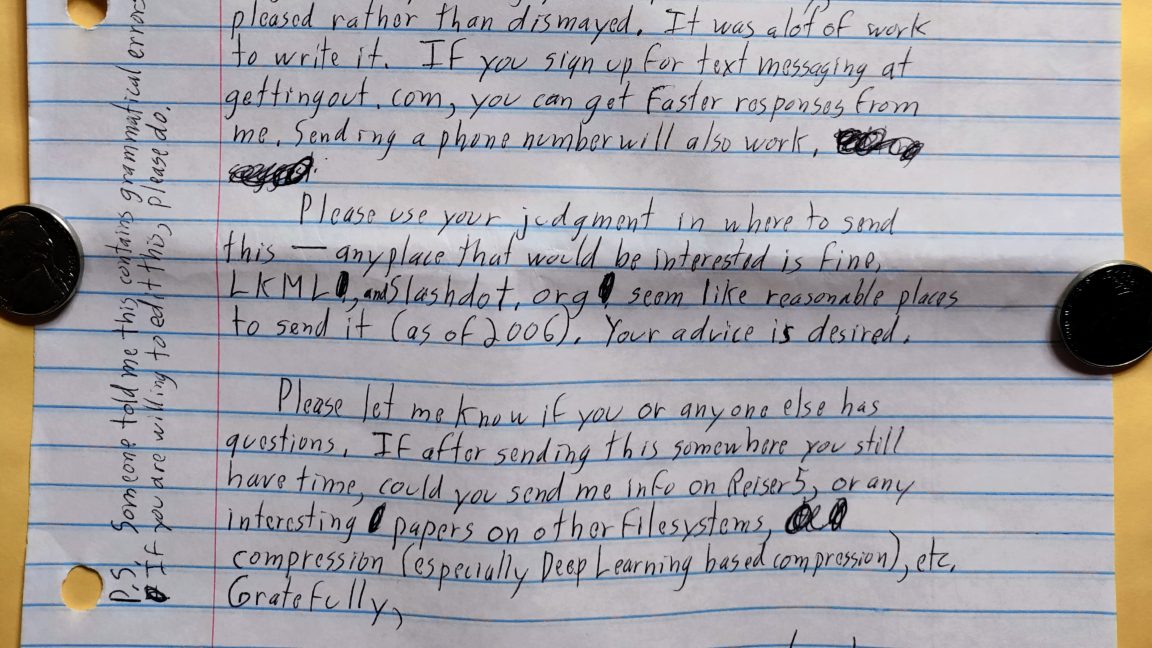 pleased rather than dismayed. It was alot of work
to write it. If you sign up for text messaging at
gettingout.com, you can get faster responses from
me. Sending a phone number will also work.
Please use your judgment in where to send
this — anyplace that would be interested is fine,
LKML, and Slashdot.org seem like reasonable places
to send it (as of 2006). Your advice is desired.
Please let me know if you or anyone else has
questions. If after sending this somewhere you still
have time, could you send me info on Reiser5, or any
interesting papers on other filesystems,
compression (especially Deep Learning based compression), etc.
Gratefully,
P.S. Someone told me this contains grammatical errors
If you are willing to edit this, please do.